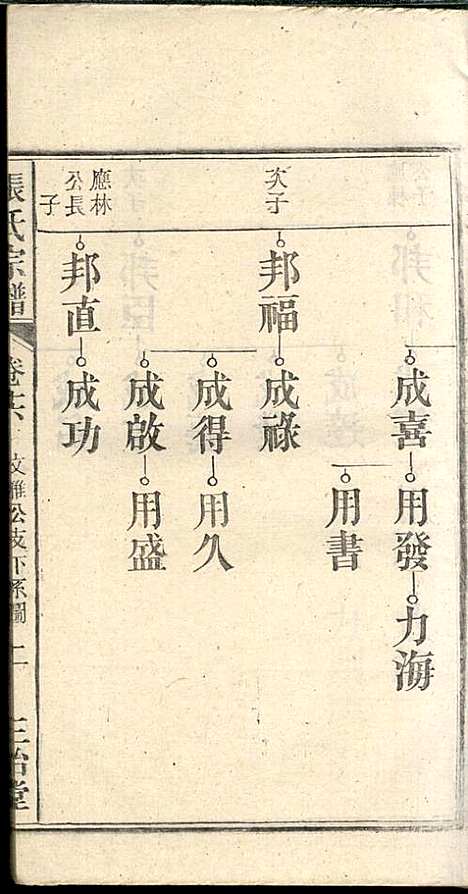 成喜 用發 力海
用書
次子 邦福 成祿
成得 用久
成啟 用盛
應林公長子 邦直 成功
張氏宗譜 卷 公支下系圖 二 三治堂